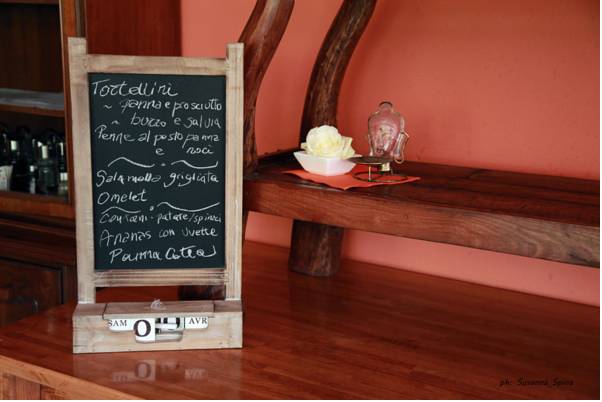 Tortellini
~ panna e prosciutto
~ burro e salvia
Penne al pesto panna
e noci
Salamella grigliata
Omelet
Contorni: patate/spinaci
Ananas con uvette
Panna Cotta
SAM O AVR
ph: Susanna_Spina